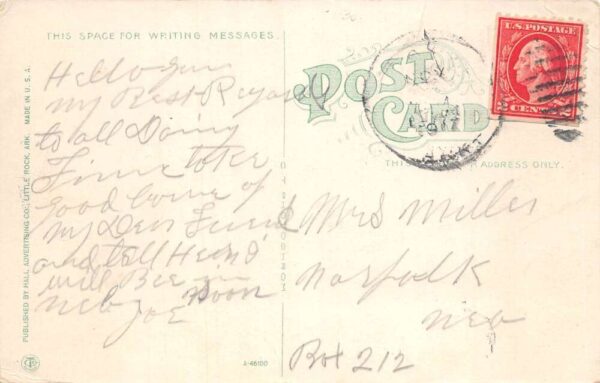 THIS SPACE FOR WRITING MESSAGES.
POST CARD
THIS SPACE FOR ADDRESS ONLY.
U.S. POSTAGE
2 CENTS 2
Hello
my Best Regards
to all Doing
Fine take
good care of
my Dear Friend
and tell
will Bee in
neb Soon
Joe
Mrs Miller
Norfolk
Neb
Box 212
PUBLISHED BY HALL ADVERTISING CO., LITTLE ROCK, ARK. MADE IN U.S.A.
A-46100